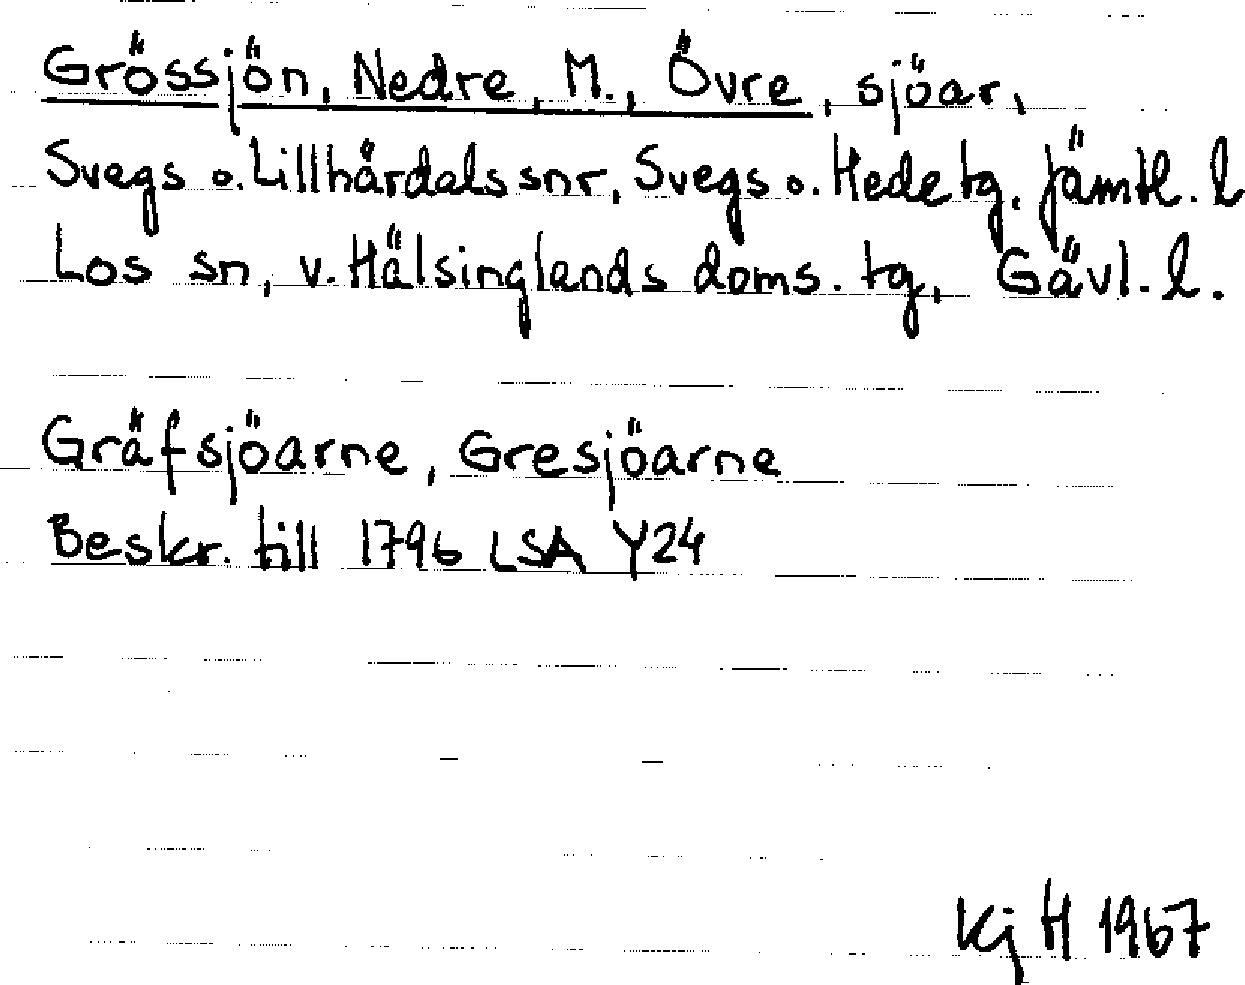 Grössjön, Nedre, M., Övre, sjöar,
Svegs o. Lillhärdals snr, Svegs o. Hede tg, Jämtl. l
Los sn, v. Hälsinglands doms. tg, Gävl. l.
Gräfsjöarne, Gresjöarne
Beskr. till 1796 LSA Y24
Kj H 1967